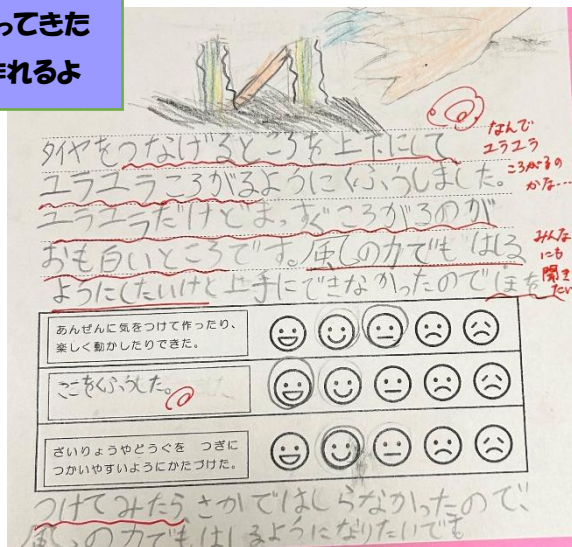 ってきた
作れるよ
タイヤをつなげるところを上下にして
ユラユラころがるようにくふうしました。
ユラユラだけどまっすぐころがるのが
おも白いところです。風しの力でもはしる
ようにしたいけど上手にできなかったのでほを
なんで
ユラユラ
ころがるの
かな…
みんな
にも
聞き
たい
あんぜんに気をつけて作ったり、
楽しく動かしたりできた。
ここをくふうした。
ざいりょうやどうぐを つぎに
つかいやすいようにかたづけた。
つけてみたらさかではしらなかったので、
風しの力でもはしるようになりたいでも